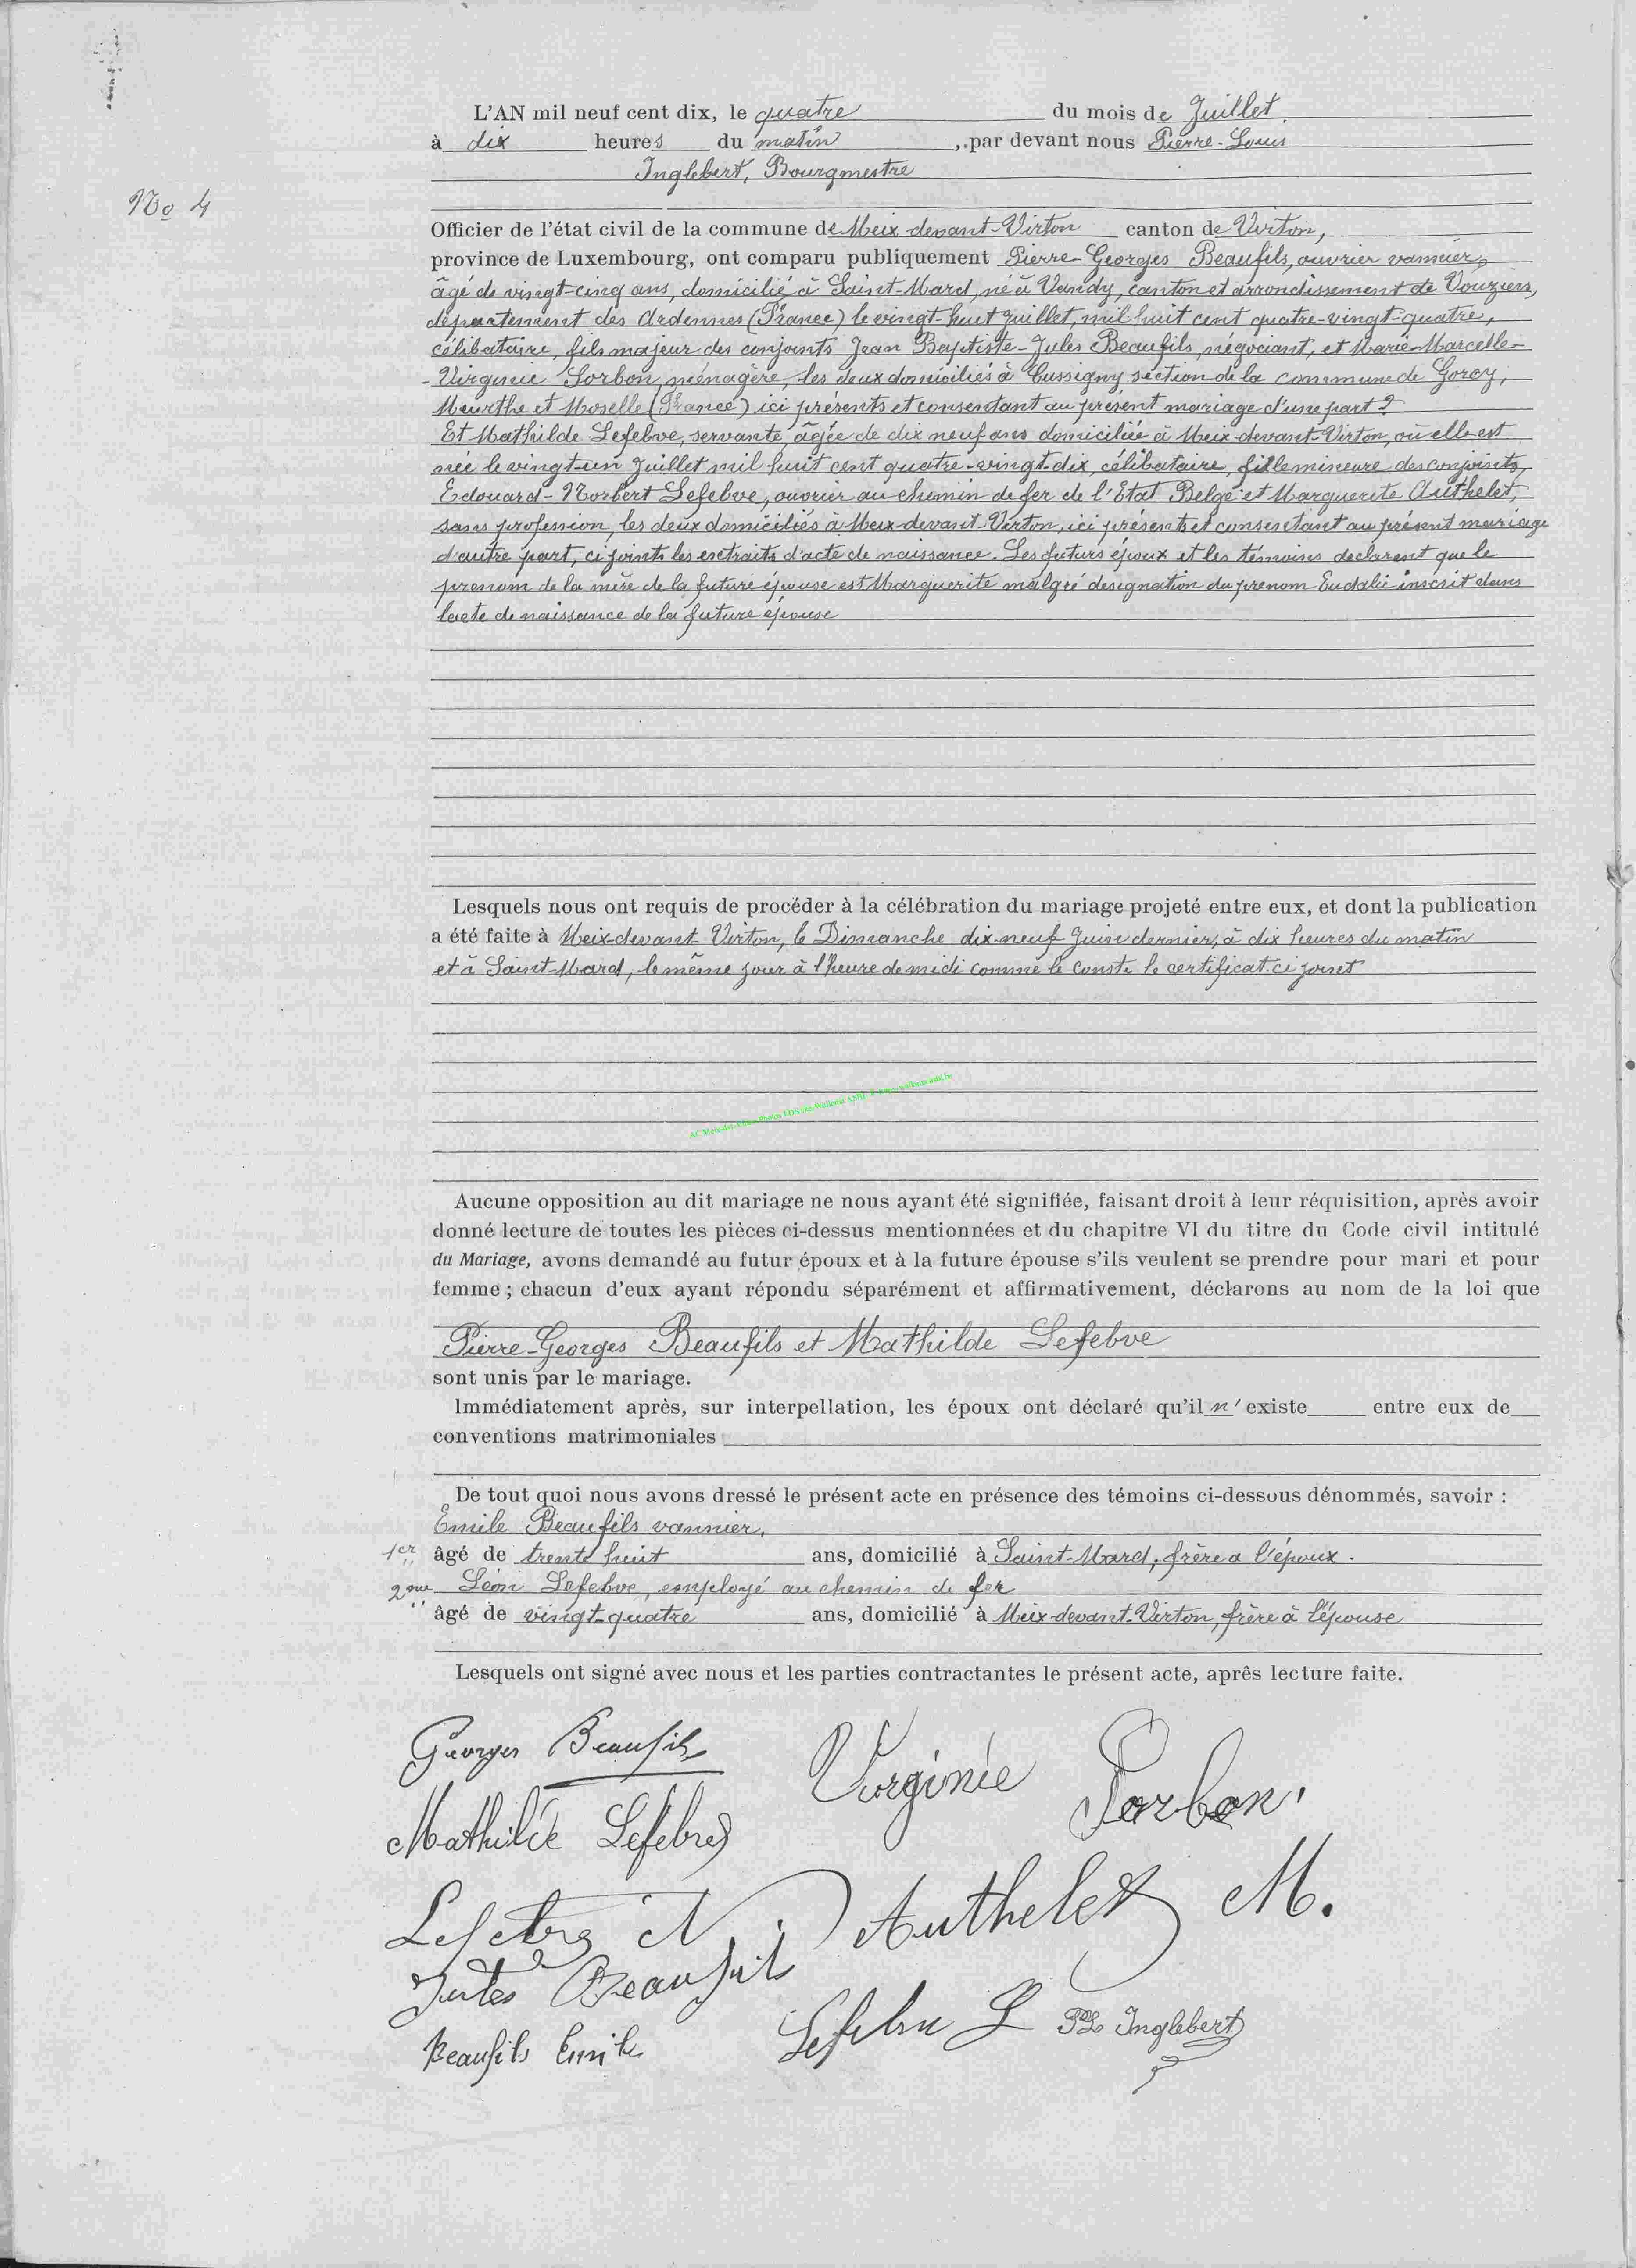 L'AN mil neuf cent dix, le quatre du mois de Juillet
à dix heures du matin, par devant nous Pierre-Louis
Inglebert, Bourgmestre
No 4
Officier de l'état civil de la commune de Meix-devant-Virton canton de Virton,
province de Luxembourg, ont comparu publiquement Pierre-Georges Beaufils, ouvrier vannier,
âgé de vingt-cinq ans, domicilié à Saint-Mard, né à Vandy, canton et arrondissement de Vouziers,
département des Ardennes (France) le vingt-huit Juillet, mil huit cent quatre-vingt-quatre,
célibataire, fils majeur des conjoints Jean Baptiste-Jules Beaufils, négociant, et Marie-Marcelle-
-Virginie Sorbon, ménagère, les deux domiciliés à Cussigny section de la commune de Gorcy,
Meurthe et Moselle (France) ici présents et consentant au présent mariage d'une part ?
Et Mathilde Lefebve, servante, âgée de dix neuf ans domiciliée à Meix-devant-Virton, où elle est
née le vingt-un Juillet mil huit cent quatre-vingt-dix, célibataire, fille mineure des conjoints,
Edouard-Norbert Lefebve, ouvrier au chemin de fer de l'Etat Belge et Marguerite Authelet,
sans profession, les deux domiciliés à Meix-devant-Virton, ici présents et consentant au présent mariage
d'autre part, ci joints les extraits d'acte de naissance. Les futurs époux et les témoins declarent que le
prenom de la mère de la future épouse est Marguerite malgré designation du prenom Eudalie inscrit dans
lacte de naissance de la future épouse
Lesquels nous ont requis de procéder à la célébration du mariage projeté entre eux, et dont la publication
a été faite à Meix-devant-Virton, le Dimanche dix-neuf Juin dernier, à dix heures du matin
et à Saint-Mard, le même jour à l'heure de midi comme le conste le certificat ci joint
Aucune opposition au dit mariage ne nous ayant été signifiée, faisant droit à leur réquisition, après avoir
donné lecture de toutes les pièces ci-dessus mentionnées et du chapitre VI du titre du Code civil intitulé
du Mariage, avons demandé au futur époux et à la future épouse s'ils veulent se prendre pour mari et pour
femme ; chacun d'eux ayant répondu séparément et affirmativement, déclarons au nom de la loi que
Pierre-Georges Beaufils et Mathilde Lefebve
sont unis par le mariage.
Immédiatement après, sur interpellation, les époux ont déclaré qu'il n'existe entre eux de
conventions matrimoniales
De tout quoi nous avons dressé le présent acte en présence des témoins ci-dessous dénommés, savoir :
Emile Beaufils vannier,
1er âgé de trente huit ans, domicilié à Saint-Mard, frère a l'époux.
2me Léon Lefebve, employé au chemin de fer
âgé de vingt-quatre ans, domicilié à Meix-devant-Virton, frère à l'épouse
Lesquels ont signé avec nous et les parties contractantes le présent acte, après lecture faite.
Georges Beaufils Virginie Sorbon.
Mathilde Lefebve
Lefebve N Authelet M.
Jules Beaufils
Beaufils Emile Lefebve L PL Inglebert